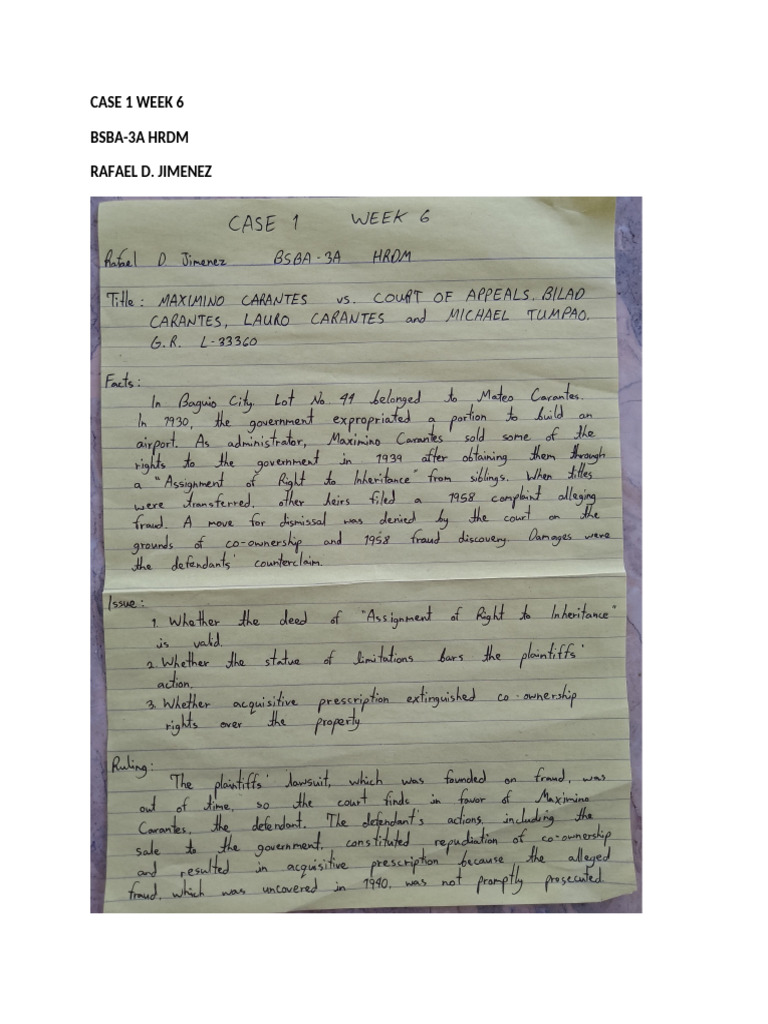 CASE 1 WEEK 6
BSBA-3A HRDM
RAFAEL D. JIMENEZ
CASE 1 WEEK 6
Rafael D. Jimenez BSBA-3A HRDM
Title: MAXIMINO CARANTES vs. COURT OF APPEALS, BILAD
CARANTES, LAURO CARANTES and MICHAEL TUMPAO.
G.R. L-33360
Facts:
In Baguio City. Lot No. 44 belonged to Mateo Carantes.
In 1930, the government expropriated a portion to build an
airport. As administrator, Maximino Carantes sold some of the
rights to the government in 1939 after obtaining them through
a "Assignment of Right to Inheritance" from siblings. When titles
were transferred, other heirs filed a 1958 complaint alleging
fraud. A move for dismissal was denied by the court on the
grounds of co-ownership and 1958 fraud discovery. Damages were
the defendants' counterclaim.
Issue:
1. Whether the deed of "Assignment of Right to Inheritance"
is valid.
2. Whether the statue of limitations bars the plaintiffs'
action.
3. Whether acquisitive prescription extinguished co-ownership
rights over the property.
Ruling:
The plaintiffs' lawsuit, which was founded on fraud, was
out of time, so the court finds in favor of Maximino
Carantes, the defendant. The defendant's actions, including the
sale to the government, constituted repudiation of co-ownership
and resulted in acquisitive prescription because the alleged
fraud, which was uncovered in 1940, was not promptly prosecuted.